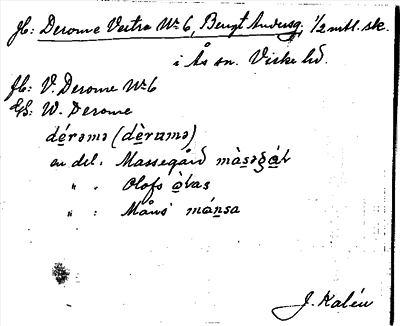 Jb: Derome Vestra No 6, Bengt Andersg, 1/2 mtl. sk.
i Ås sn. Viske hd.
Jb: V. Derome No 6
EB: W. Derome
dérəmə (dèrumə)
en del: Massegård màsəgárd
" : Olofs òlas
" : Måns' mánsa
J. Kalén